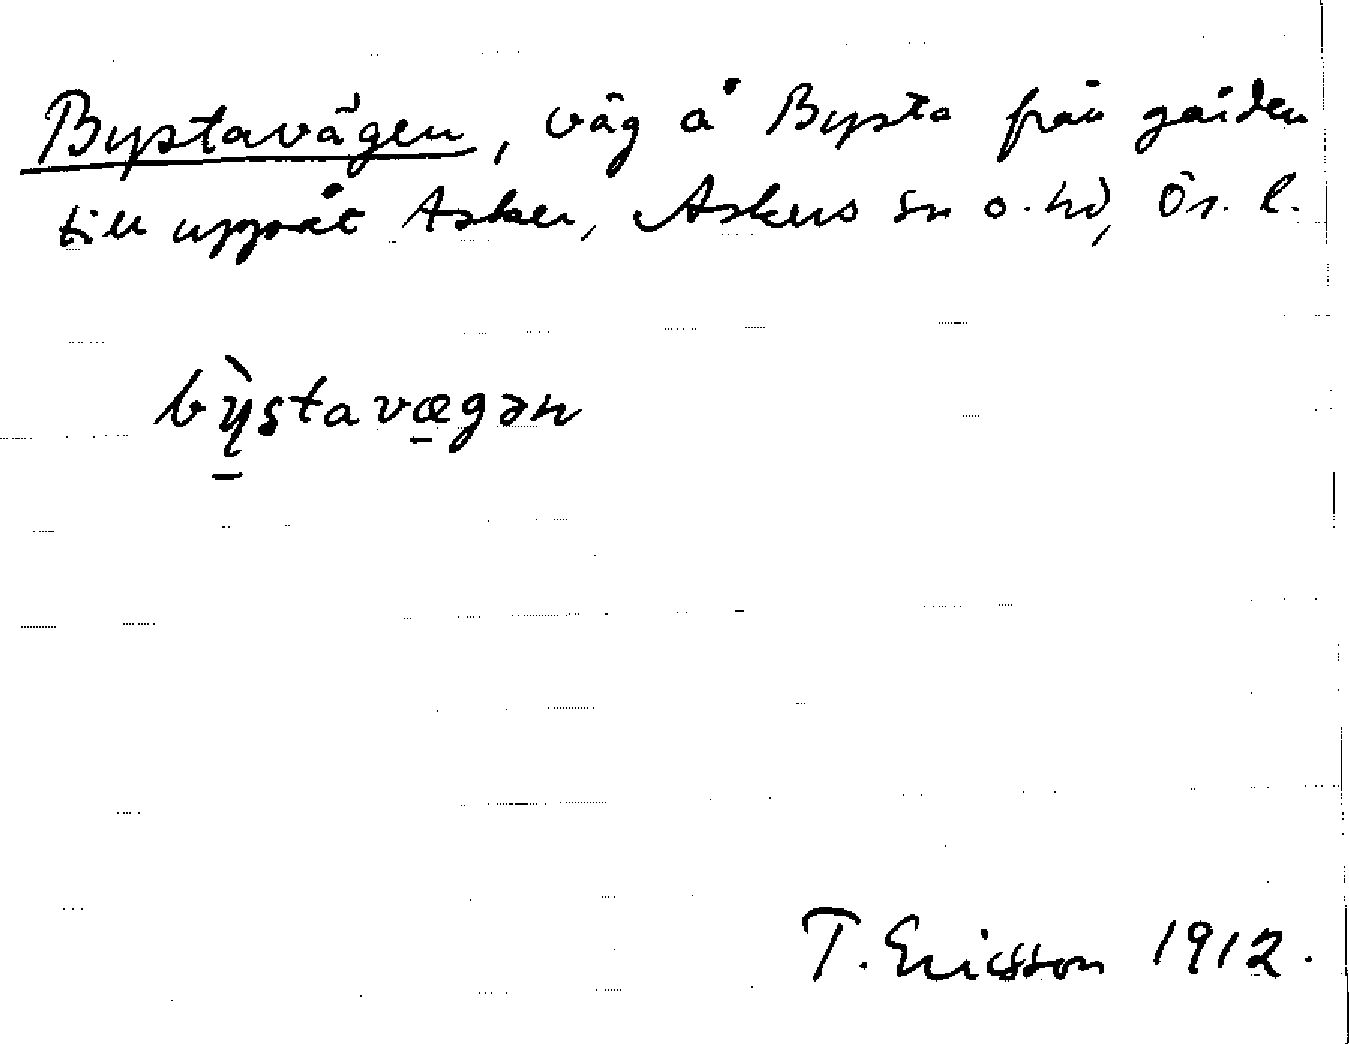 Bystavägen, väg å Bysta från gården
till uppåt Asker, Askers sn o. hd, Ör. l.
bỳstavægən
T. Ericsson 1912.